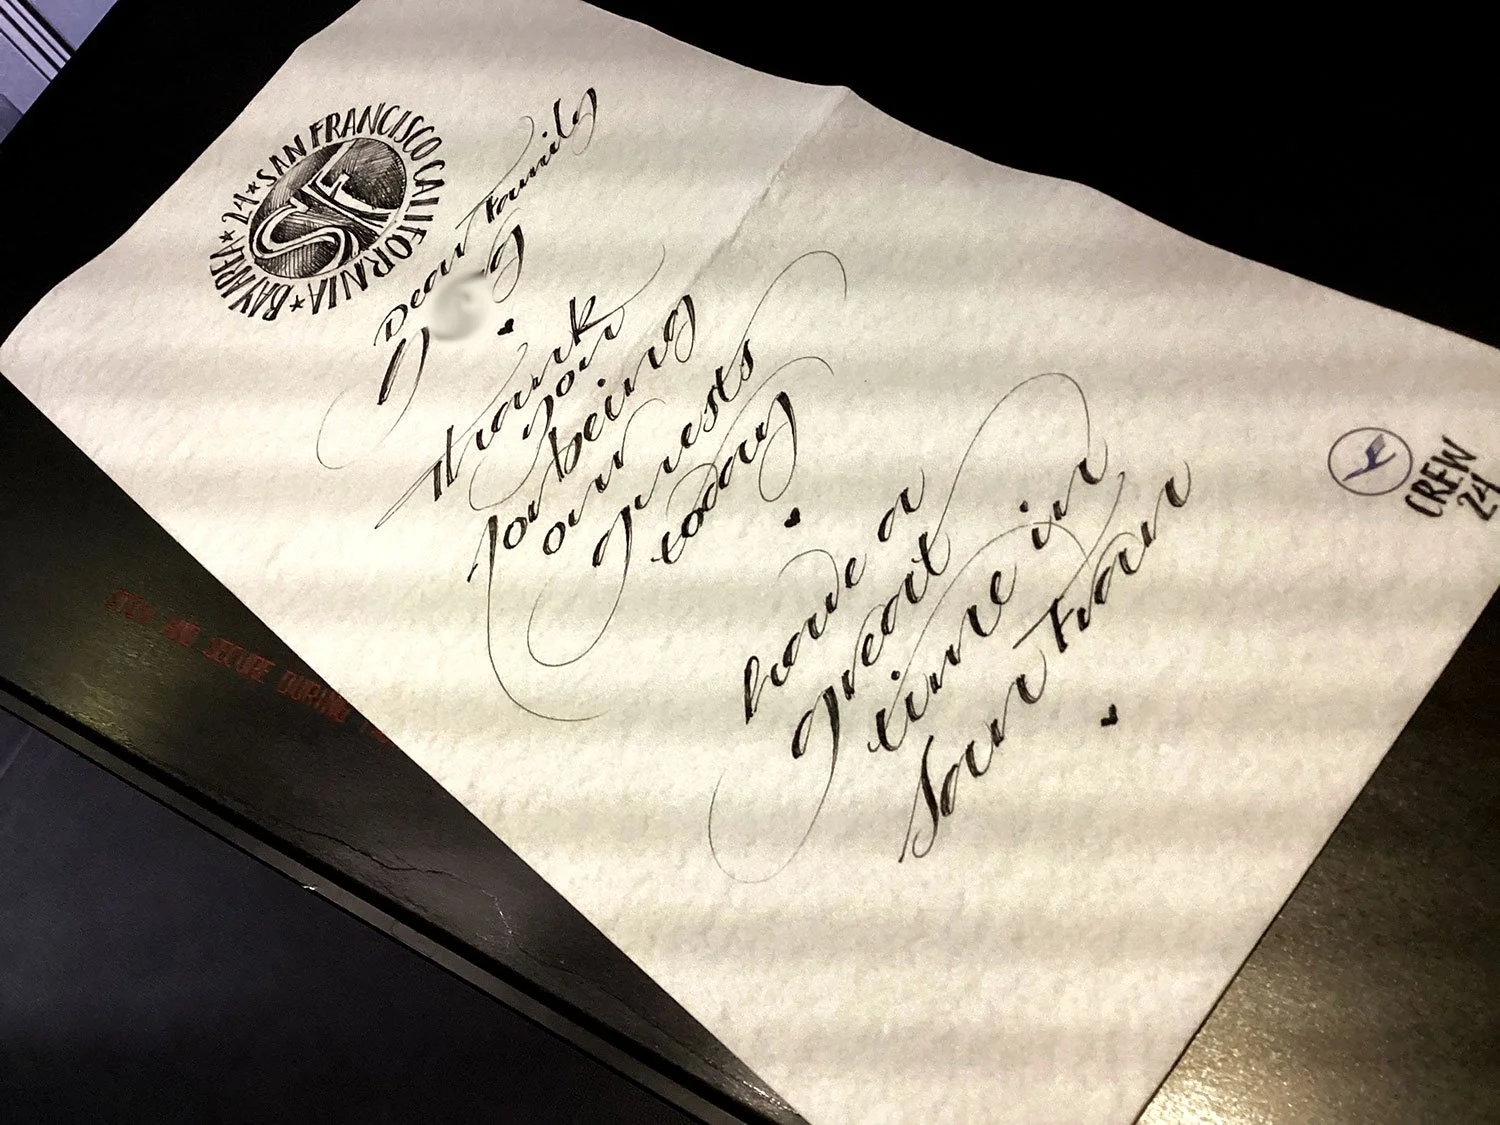 ★ SAN FRANCISCO CALIFORNIA ★ BAY AREA ★ 24
SF
Dear Family
Thank
you
for being
our
guests
today
have a
great
time in
San Fran
CREW
24
STOW AND SECURE DURING